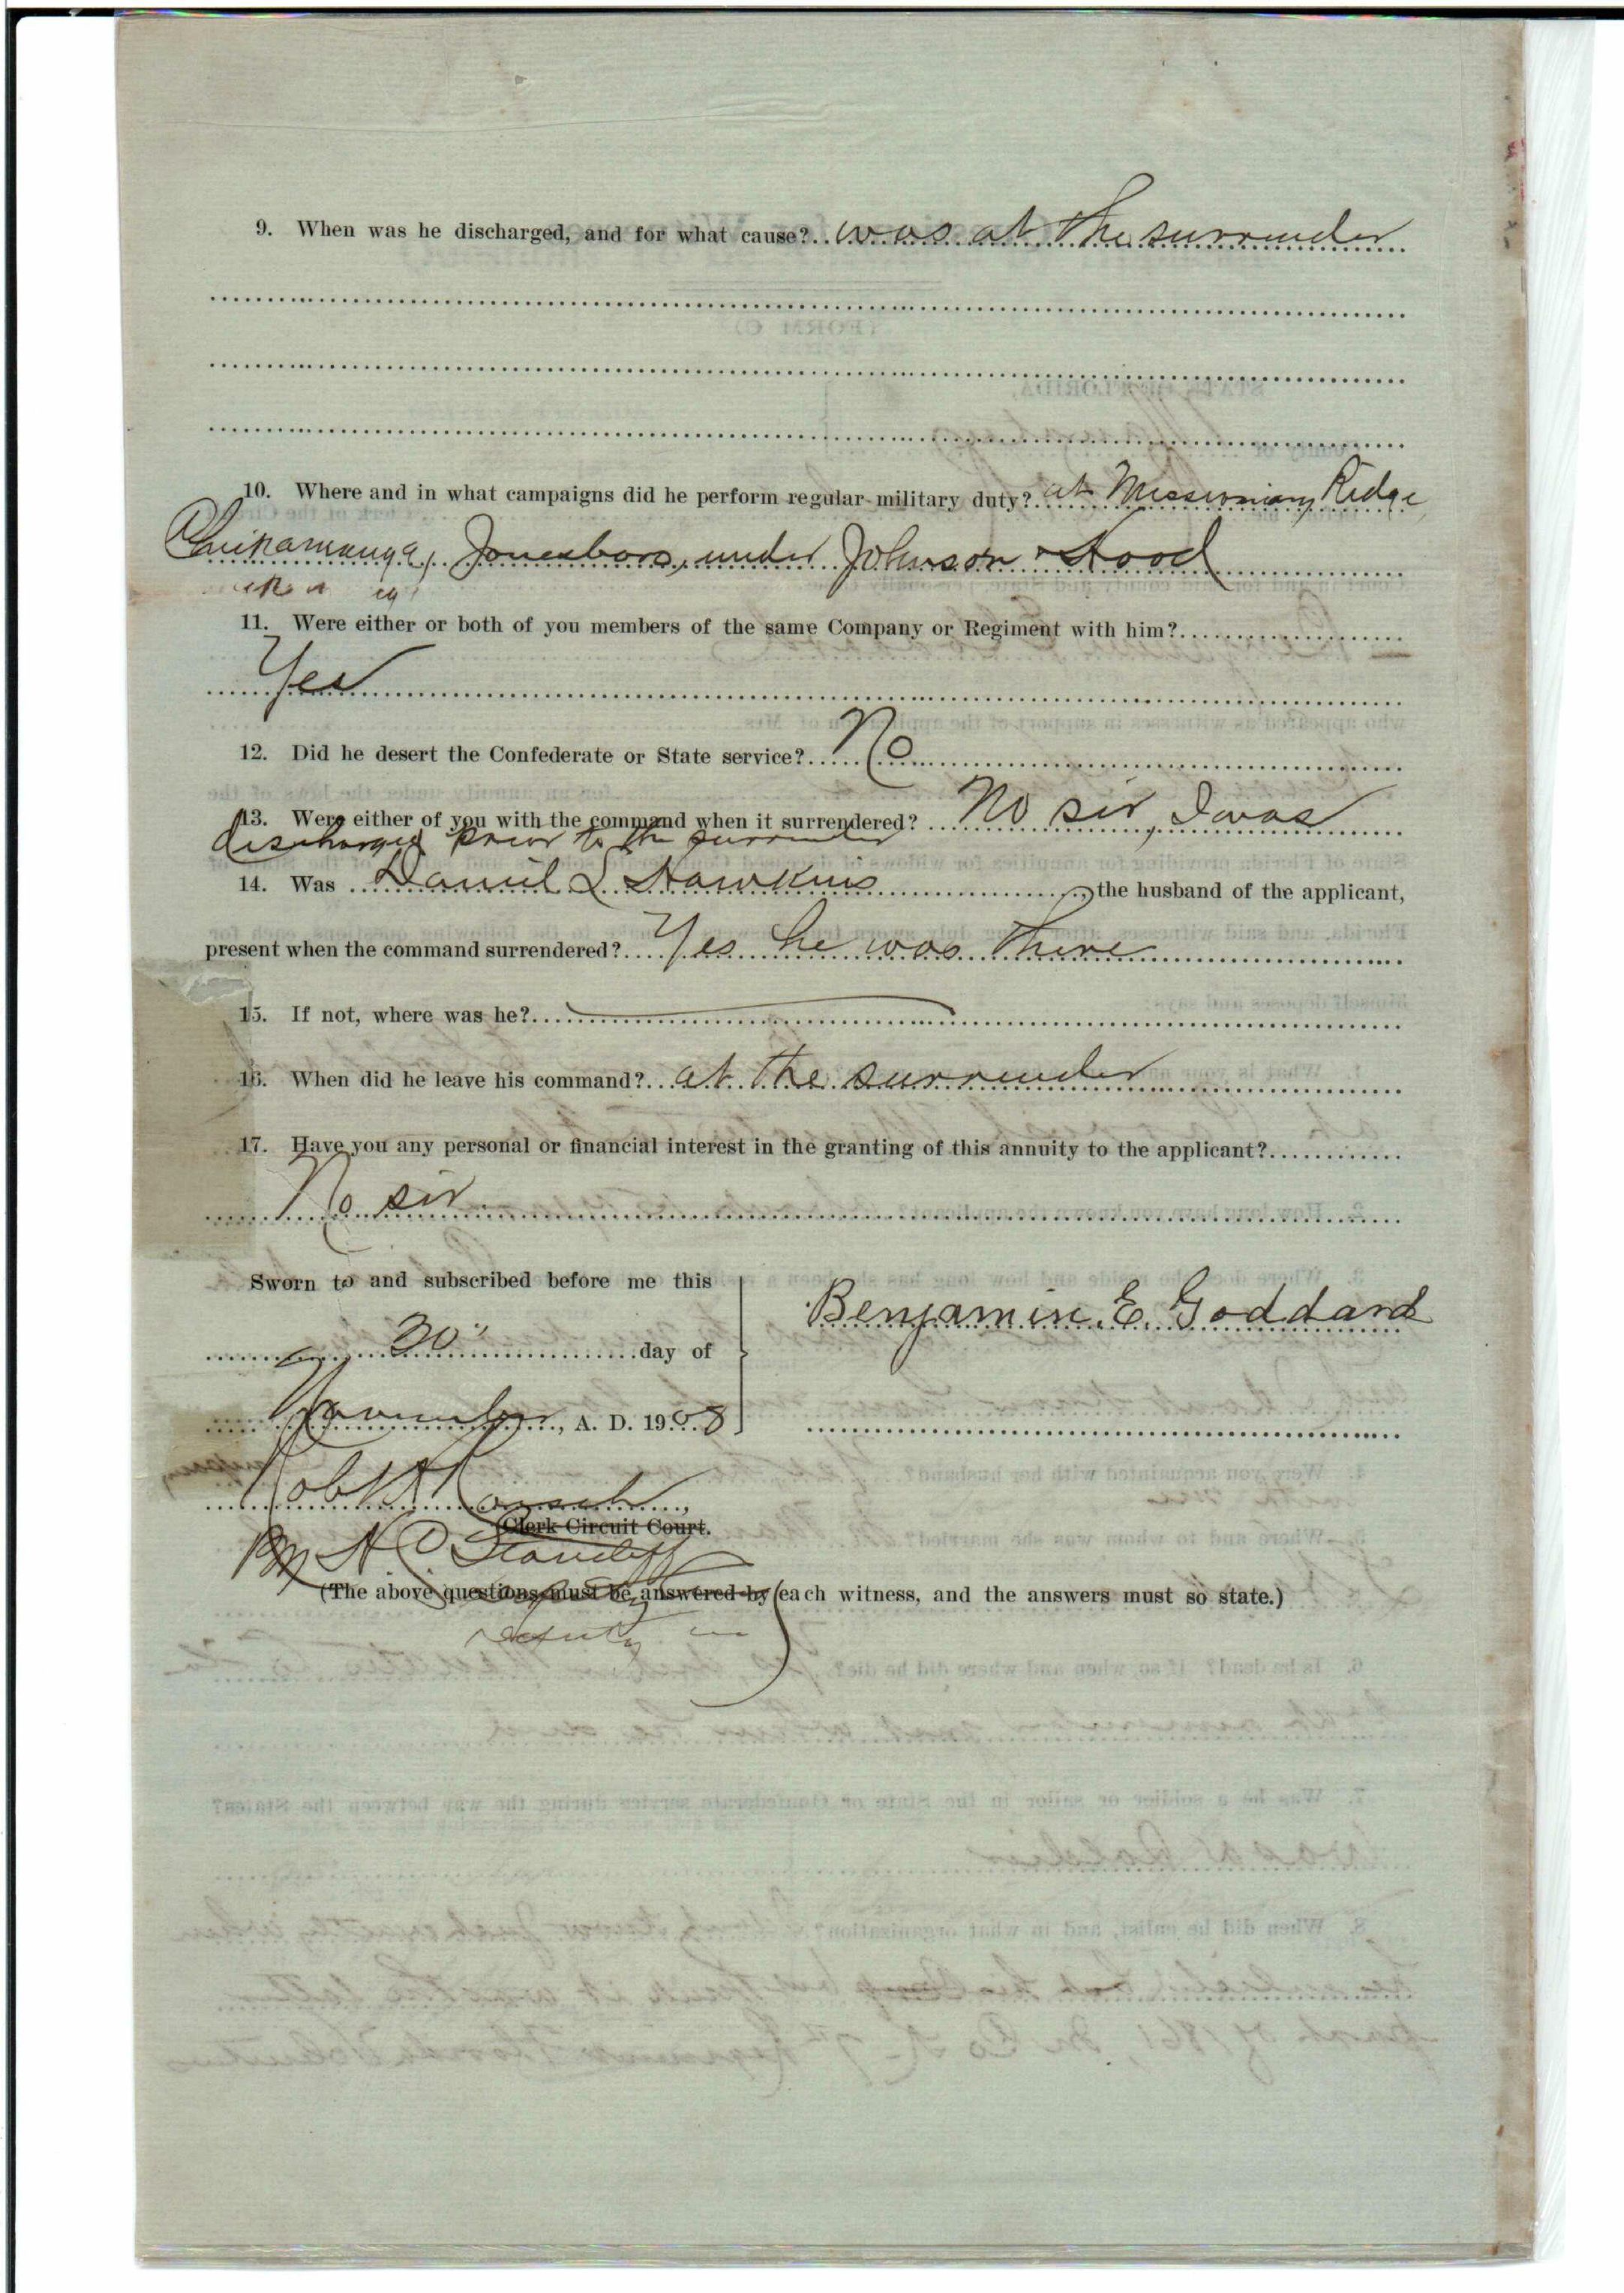 9. When was he discharged, and for what cause? was at the surrender
10. Where and in what campaigns did he perform regular military duty? at Missionary Ridge
Chicamauga, Jonesboro, under Johnson & Hood
11. Were either or both of you members of the same Company or Regiment with him?
Yes
12. Did he desert the Confederate or State service? No
13. Were either of you with the command when it surrendered? No sir, I was
discharged prior to the surrender
14. Was Daniel L Hawkins, the husband of the applicant,
present when the command surrendered? Yes he was there
15. If not, where was he?
16. When did he leave his command? at the surrender
17. Have you any personal or financial interest in the granting of this annuity to the applicant?
No sir
Sworn to and subscribed before me this
30" day of
November, A. D. 1908
Benjamin. E. Goddard
Robt H
Clerk Circuit Court.
By H O
(The above questions must be answered by each witness, and the answers must so state.)
Deputy